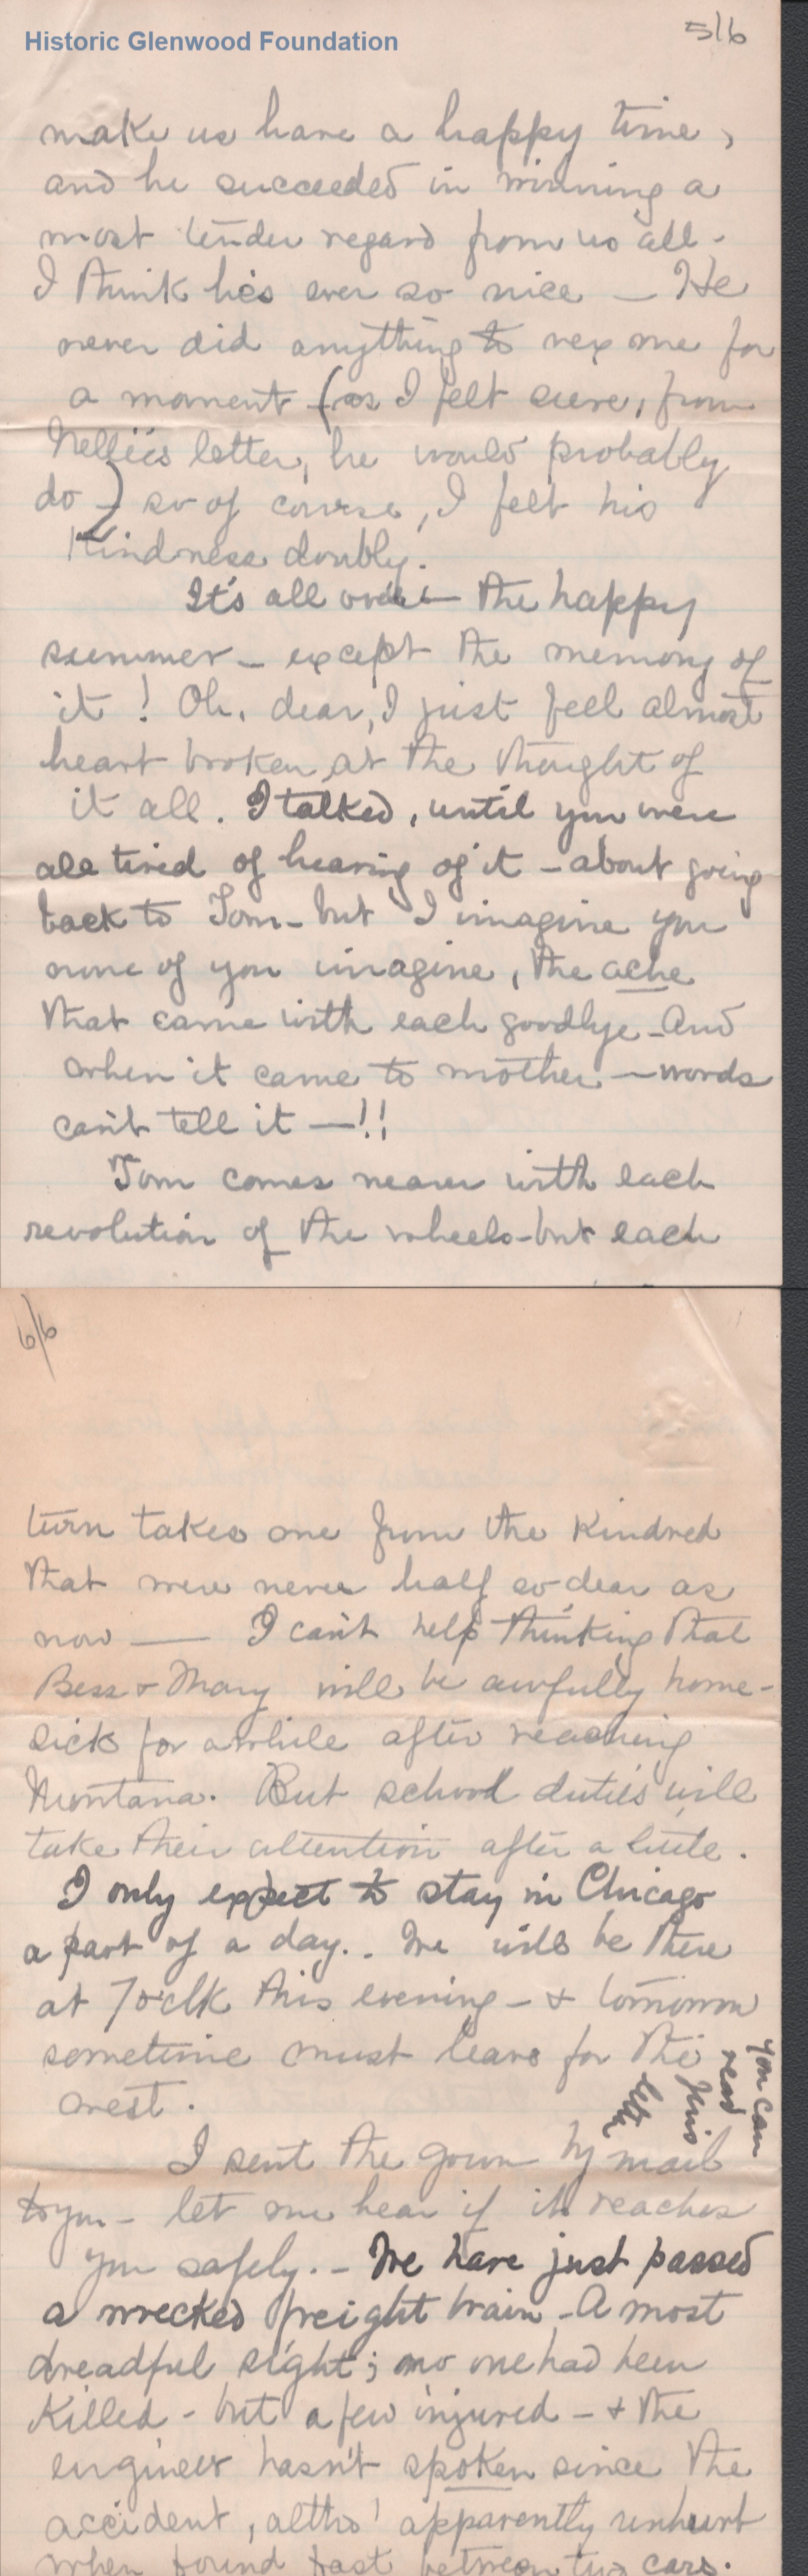 Historic Glenwood Foundation
5/6
make us have a happy time,
and he succeeded in winning a
most tender regard from us all -
I think he's ever so nice — He
never did anything to vex me for
a moment (as I felt sure, from
Nellie's letter, he would probably
do -) so of course, I felt his
kindness doubly.
It's all over — the happy
summer - except the memory of
it! Oh, dear, I just feel almost
heart broken at the thought of
it all. I talked, until you were
all tired of hearing of it - about going
back to Tom - but I imagine you
none of you imagine, the ache
that came with each goodbye - And
when it came to mother — words
can't tell it —!!
Tom comes nearer with each
revolution of the wheels - but each
6/6
turn takes one from the kindred
that were never half so dear as
now — I can't help thinking that
Bess & Mary will be awfully home-
sick for awhile after reaching
Montana. But school duties will
take their attention after a little.
I only expect to stay in Chicago
a part of a day.. We will be there
at 7 o'clk this evening - & tomorrow
sometime must leave for the
west.
you can
read
this
I sent the gown by mail
to you - let me hear if it reaches
you safely. - We have just passed
a wrecked freight train - A most
dreadful sight; no one had been
killed - but a few injured - & the
engineer hasn't spoken since the
accident, altho' apparently unhurt
when found fast between two cars.